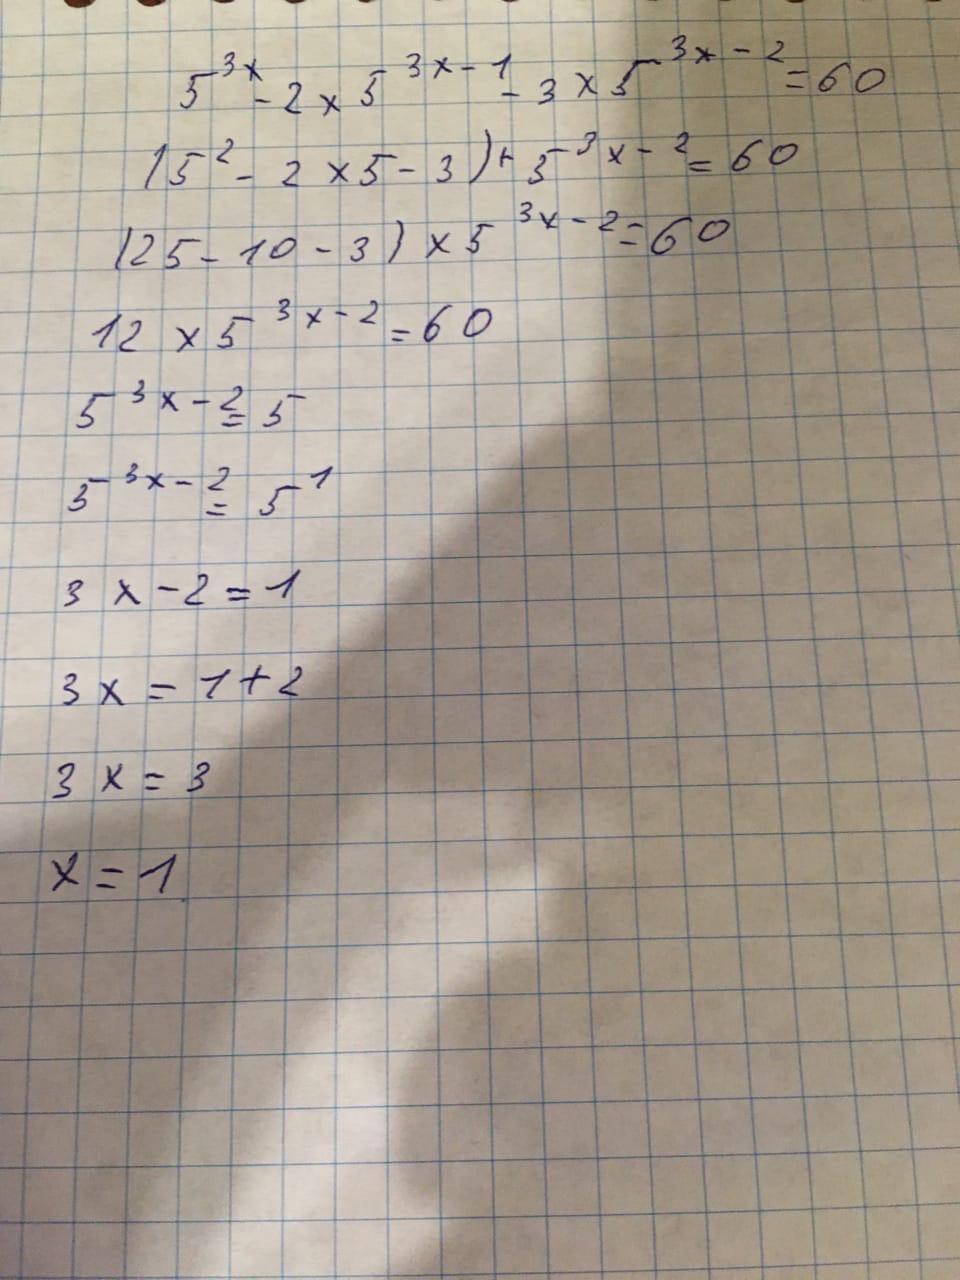 5^3x - 2 x 5^3x-1 - 3 x 5^3x-2 = 60
(5^2 - 2 x 5 - 3) + 5^3x-2 = 60
(25 - 10 - 3) x 5^3x-2 = 60
12 x 5^3x-2 = 60
5^3x-2 = 5
5^3x-2 = 5^1
3x - 2 = 1
3x = 1 + 2
3x = 3
x = 1